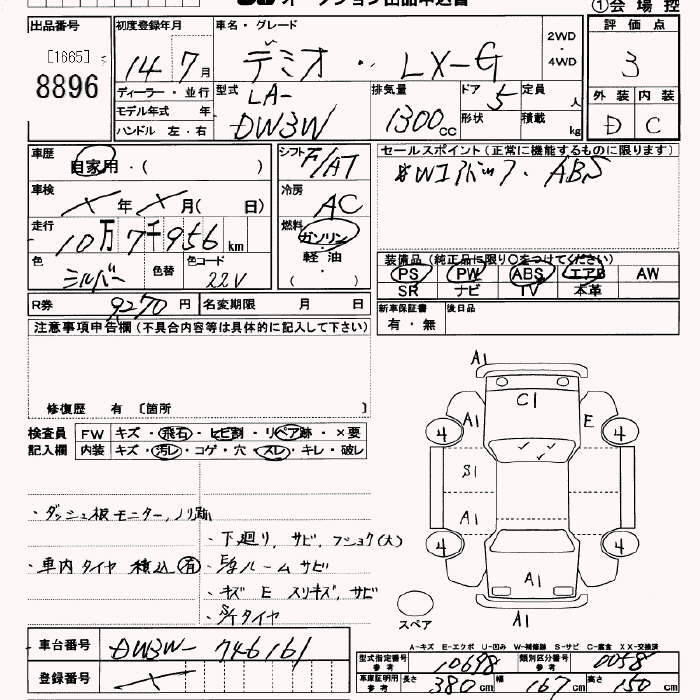 オークション出品申込書 ①会場控
出品番号 初度登録年月 車名・グレード 2WD ・ 4WD 評価点
[1665] 8896 14 7月 デミオ・LX-G 3
ディーラー・並行 型式 LA-DW3W 排気量 1300cc ドア 5 定員 人 外装 内装
モデル年式 年 形状 積載 kg D C
ハンドル 左・右
車歴 自家用・( ) シフト F/AT セールスポイント(正常に機能するものに限ります)
車検 × 年 × 月( 日) 冷房 AC ♯Wエアバッグ・ABS
走行 10万7千956km 燃料 ガソリン 軽油
色 シルバー 色替 色コード 22V 装備品(純正品に限り○をつけてください)
PS PW ABS エアB AW
SR ナビ TV 本革
R券 9270円 名変期限 月 日 新車保証書 有・無 後日品
注意事項申告欄(不具合内容等は具体的に記入して下さい)
修復歴 有 〔箇所 〕
検査員 FW キズ・飛石・ヒビ割・リペア跡・×要
記入欄 内装 キズ・汚レ・コゲ・穴・スレ・キレ・破レ
・ダッシュ板モニター,ノリ跡
・下廻り,サビ,フショク(大)
・車内タイヤ積込(有)
・E/ルームサビ
・キズ E スリキズ,サビ
・S/タイヤ
A1
C1
A1 E
4 4
S1
A1
4 4
A1
スペア A1
A-キズ E-エクボ U-凹み W-補修跡 S-サビ C-腐食 XX-交換済
車台番号 DW3W-746161 型式指定番号 参考 10698 類別区分番号 参考 0058
登録番号 × 車庫証明用 参考 長さ 380cm 幅 167cm 高さ 150cm